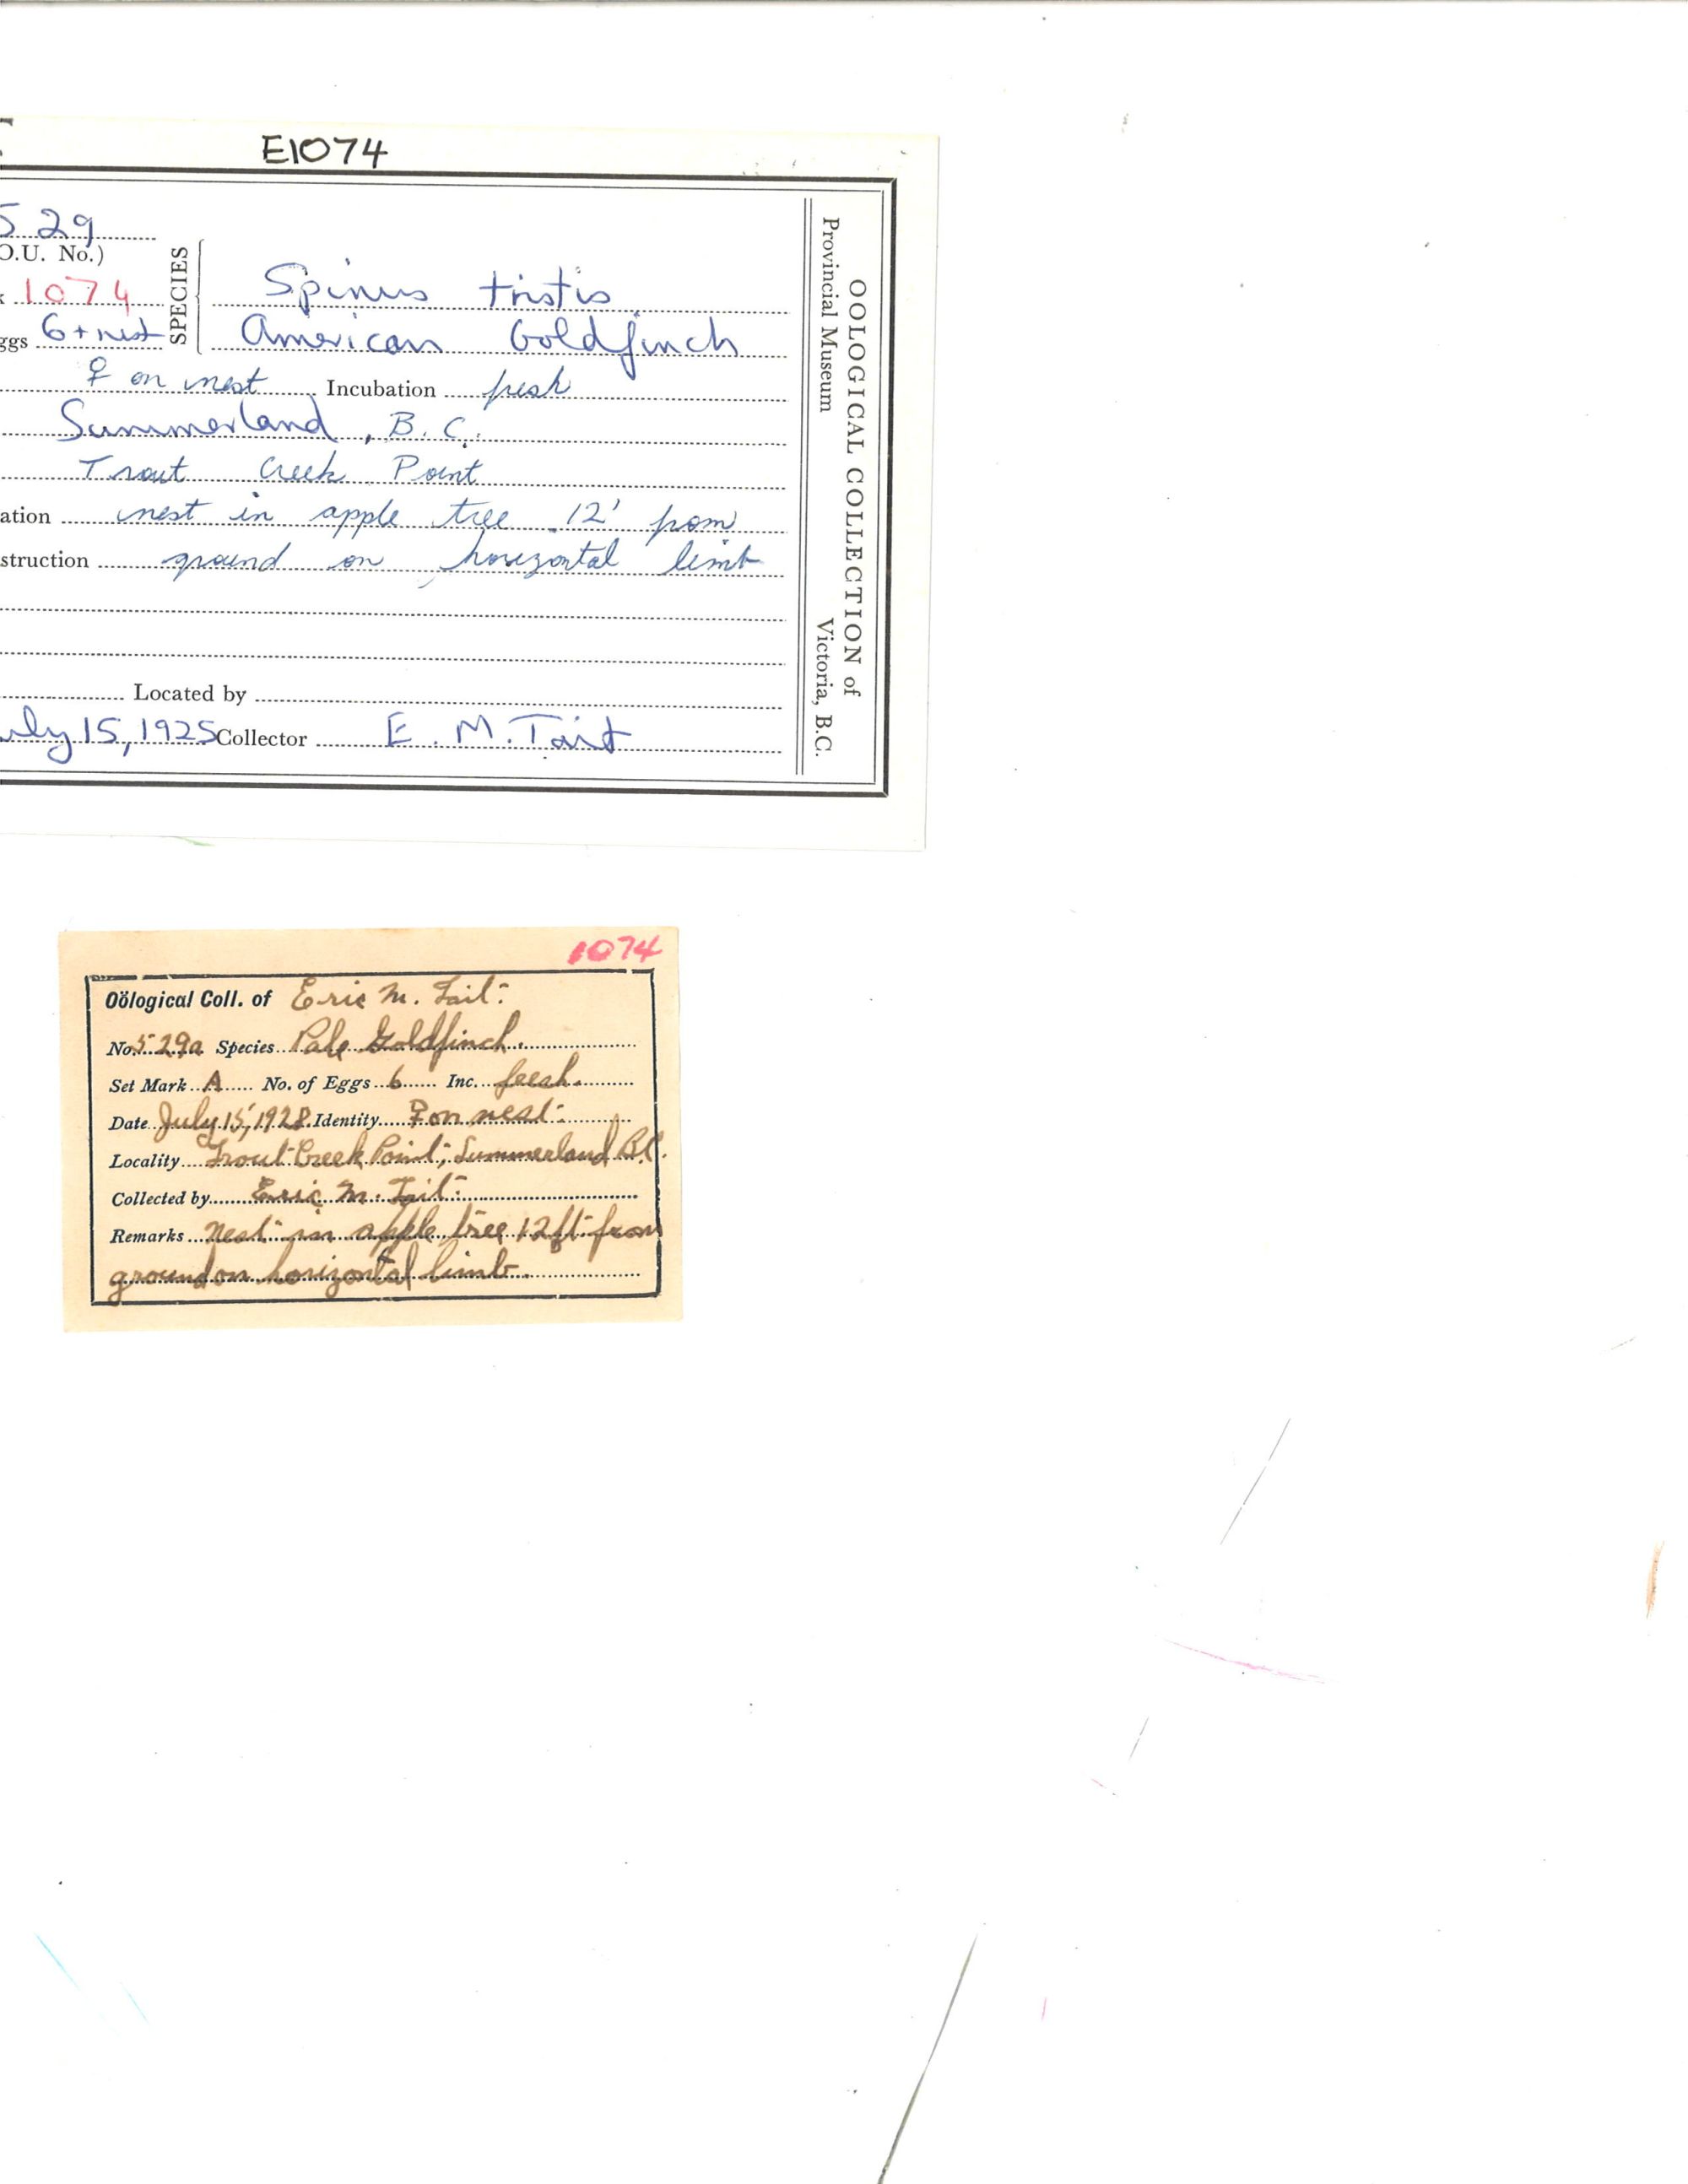 E1074
529
O.U. No.)
1074
SPECIES
Spinus tristis
ggs 6 + nest
American Goldfinch
♀ on nest Incubation fresh
Summerland, B.C.
Trout Creek Point
ation nest in apple tree 12' from
struction ground on horizontal limb
Located by
July 15, 1925 Collector E. M. Tait
OOLOGICAL COLLECTION of
Provincial Museum Victoria, B.C.
1074
Oölogical Coll. of Eric M. Tait
No. 529a Species Pale Goldfinch.
Set Mark A No. of Eggs 6 Inc. fresh.
Date July 15, 1928 Identity ♀ on nest
Locality Trout Creek Point, Summerland B.C.
Collected by Eric M. Tait
Remarks Nest in apple tree 12 ft from
ground on horizontal limb.